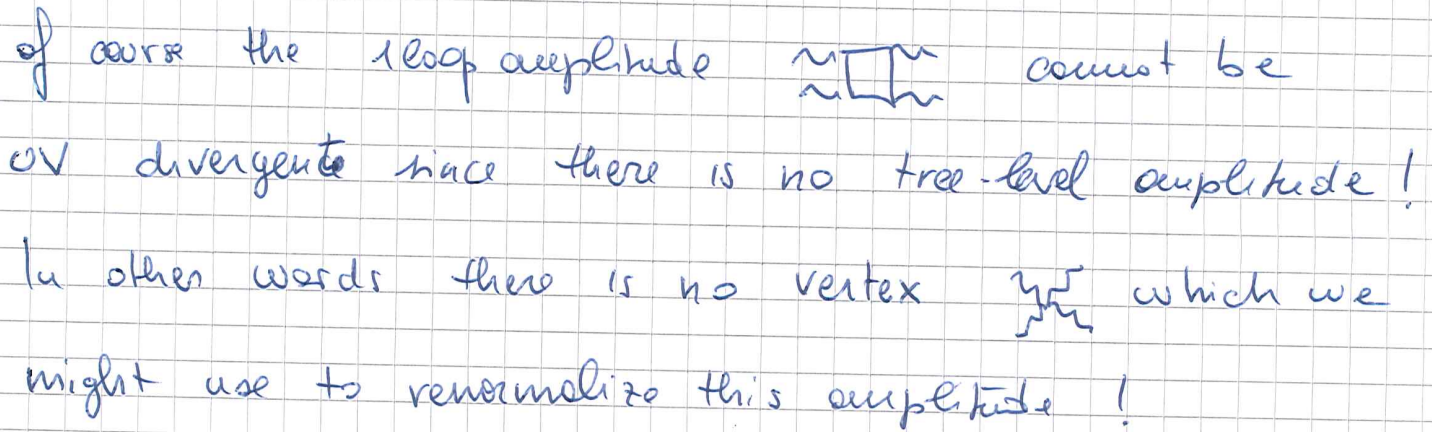 of course the 1loop amplitude cannot be
UV divergente since there is no tree-level amplitude!
In other words there is no vertex which we
might use to renormalize this amplitude!